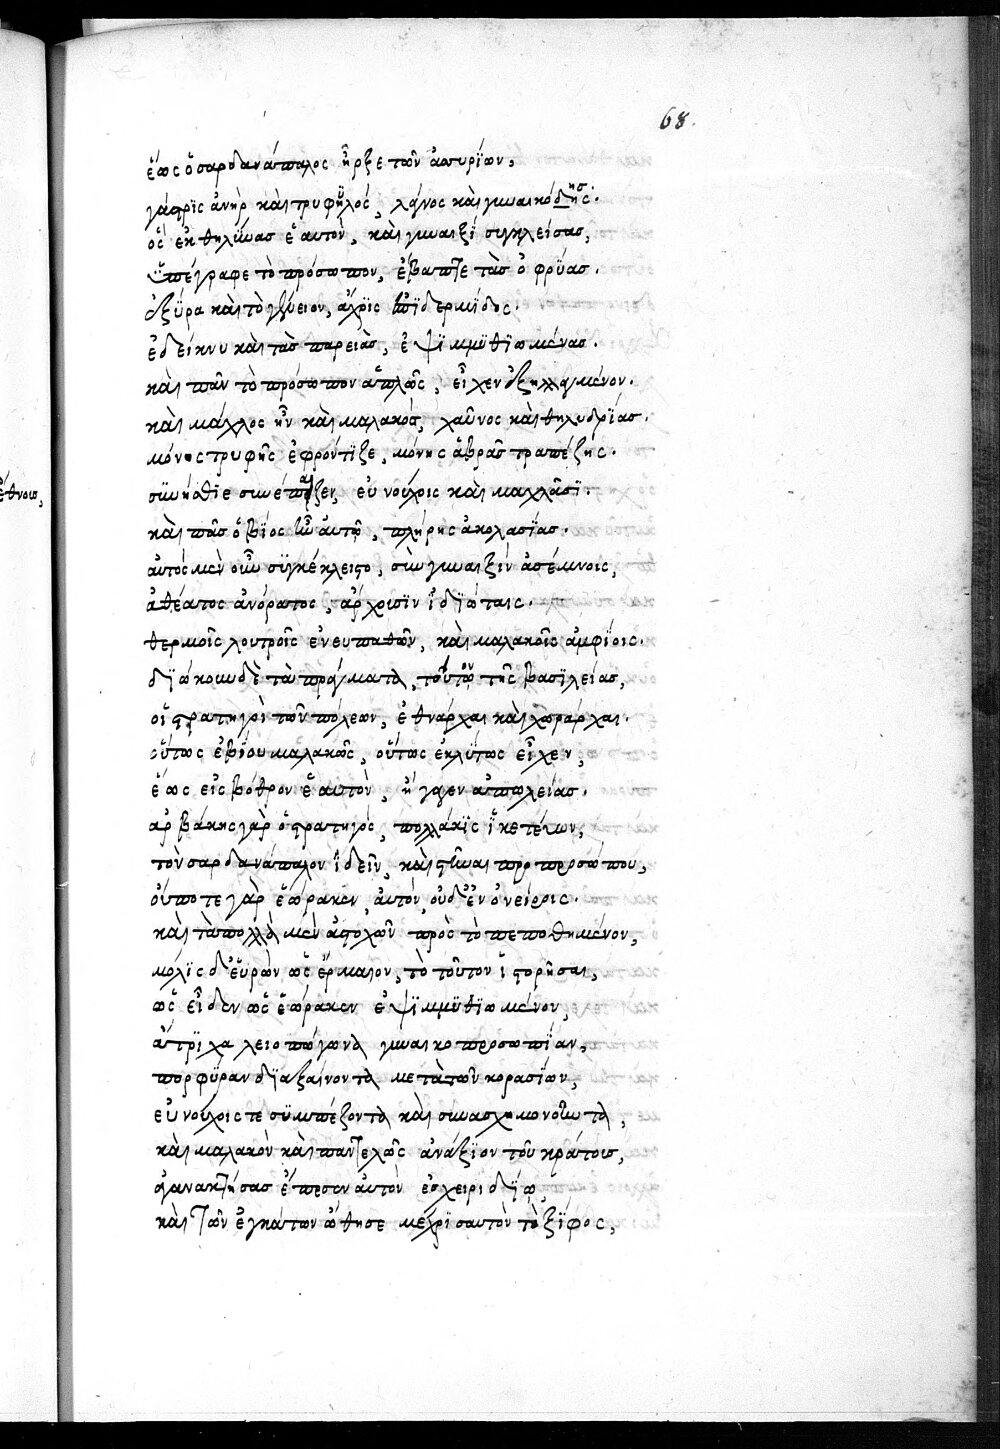 68.
ἕως ὁ σαρδανάπαλος ἦρξε τῶν ἀσσυρίων,
γάστρις ἀνὴρ καὶ τρυφηλός, λάγνος καὶ γυναικώδης.
ὃς ἐκθηλύνας ἑαυτὸν, καὶ γυναιξὶ συγκλείσας,
ὑπέγραφε τὸ πρόσωπον, ἔβαπτε τὰς ὀφρῦας.
ἐξύρα καὶ τὸ γένειον, ἄχρις ἐπιδερμίδος.
ἐδείκνυ καὶ τὰς παρειὰς, ἐψιμμυθιωμένας.
καὶ πᾶν τὸ πρόσωπον ἁπλῶς, εἶχεν ἐξηλλαγμένον.
καὶ μάχλος ἦν καὶ μαλακός, χαῦνος καὶ θηλυδρίας.
μόνης τρυφῆς ἐφρόντιζε, μόνης ἁβρᾶς τραπέζης.
συνήσθιε συνέπαιζεν, εὐνούχοις καὶ μαχλάσι.
καὶ πᾶς ὁ βίος ἦν αὐτῷ, πλήρης ἀκολασίας.
αὐτὸς μὲν οὖν συγκέκλειστο, σὺν γυναιξὶν ἀσέμνοις,
ἀθέατος ἀνόρατος, ἄρχουσιν ἰδιώταις.
θερμοῖς λουτροῖς ἐνευπαθῶν, καὶ μαλακοῖς ἀμφίοις.
διῴκουν δὲ τὰ πράγματα, τούτῳ τῆς βασιλείας,
οἱ στρατηγοὶ τῶν πόλεων, ἐθνάρχαι καὶ χωράρχαι.
οὕτως ἐβίου μαλακῶς, οὕτως ἐκλύτως εἶχεν,
ἕως εἰς βόθρον ἑαυτὸν, ἤγαγεν ἀπωλείας.
ἀρβάκης γὰρ ὁ στρατηγὸς, πολλάκις ἱκετεύων,
τὸν σαρδανάπαλον ἰδεῖν, καὶ στῆναι πρὸ προσώπου,
οὔποτε γὰρ ἑώρακεν, αὐτὸν, οὐδ' ἐν ὀνείροις.
καὶ τὰ πολλὰ μὲν ἀστοχῶν πρὸς τὸ πεποθημένον,
μόλις δ' εὑρὼν ὡς ἕρμαιον, τὸ τοῦτον ἱστορῆσαι,
ὡς εἶδεν ὡς ἑώρακεν ἐψιμμυθιωμένον,
ἄτριχα λειοπώγωνα γυναικοπροσωπίαν,
πορφύραν διαξαίνοντα μετὰ τῶν κορασίων,
εὐνούχοις τε συμπέζοντα καὶ συνασχημονοῦντα,
καὶ μαλακὸν καὶ παντελῶς ἀνάξιον τοῦ κράτους,
ἀγανακτήσας ἔπαισεν αὐτὸν ἐγχειριδίῳ,
καὶ τῶν ἐγκάτων ὤθησε μέχρις αὐτὸν τὸ ξίφος,